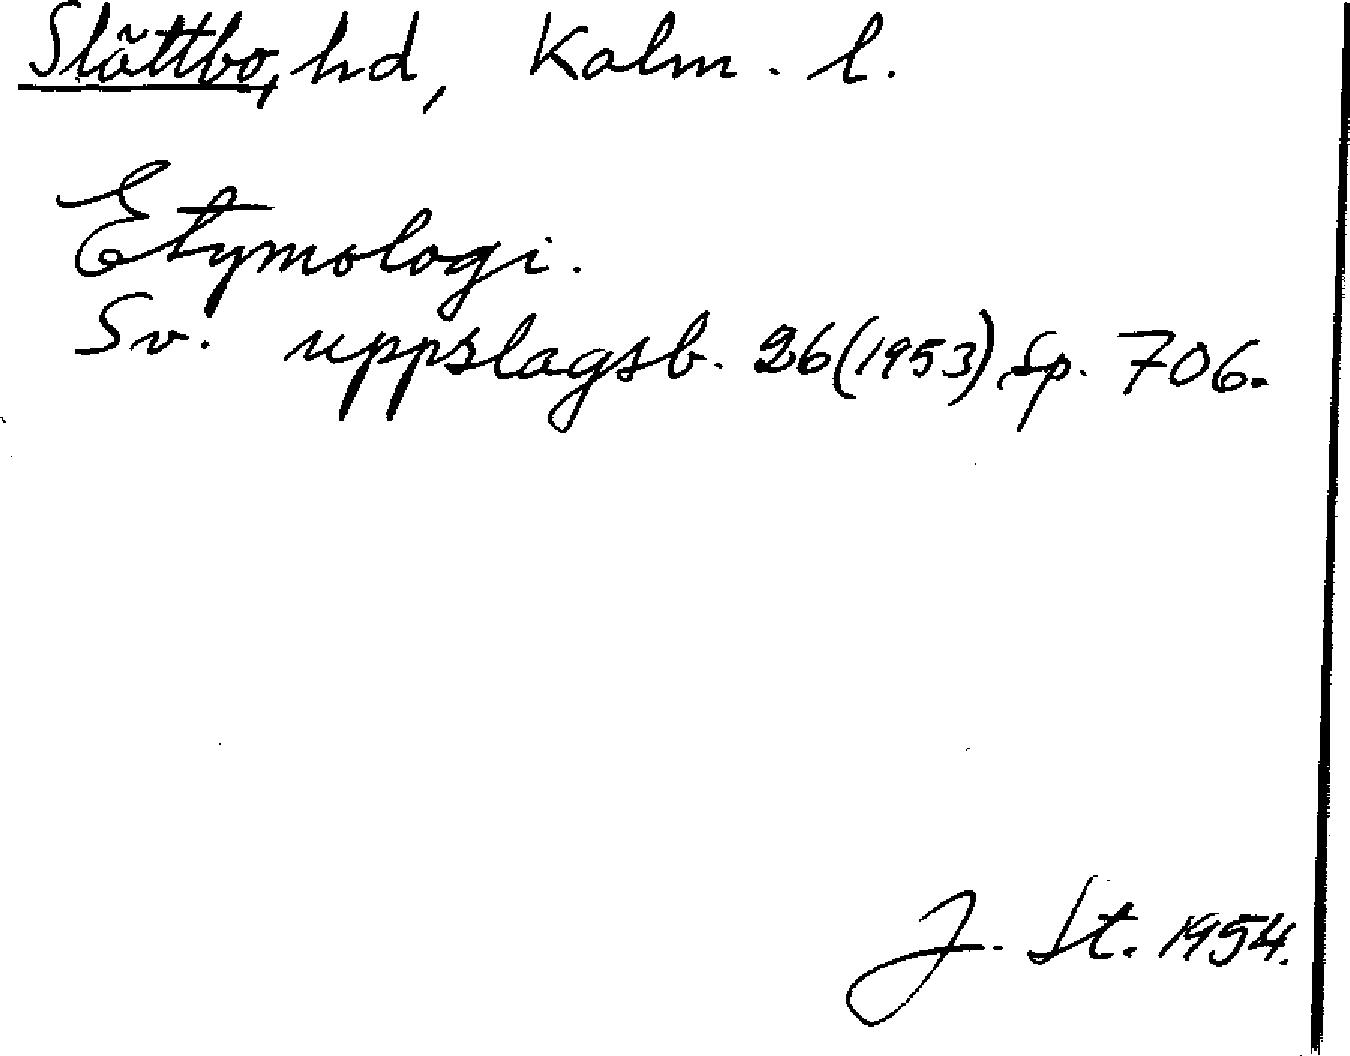 Slättbo, hd, Kalm. l.
Etymologi.
Sv. uppslagsb. 26 (1953) sp. 706.
J. St. 1954.